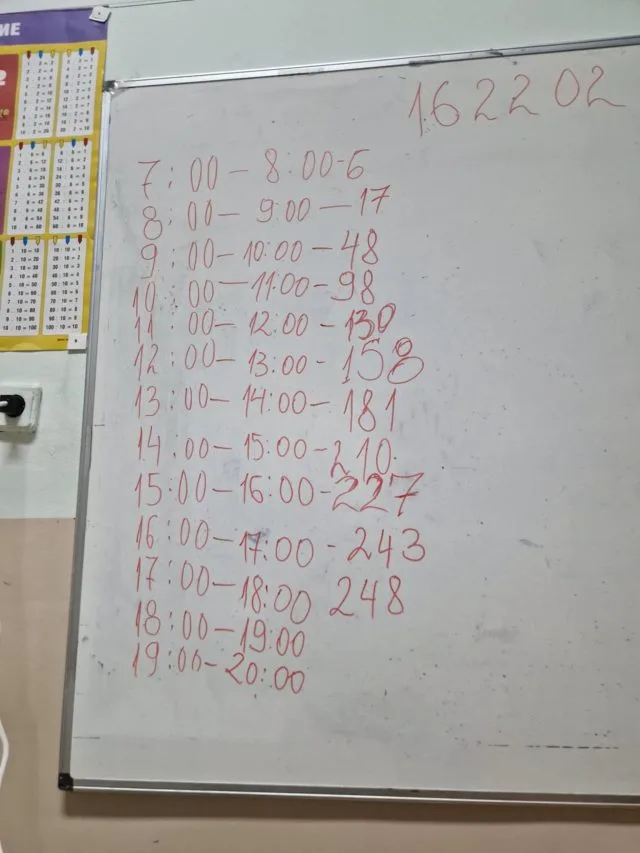 ИЕ
162202
7:00-8:00-6
8:00-9:00-17
9:00-10:00-48
10:00-11:00-98
11:00-12:00-130
12:00-13:00-158
13:00-14:00-181
14.00-15:00-210.
15:00-16:00-227
16:00-17:00-243
17:00-18:00 248
18:00-19:00
19:00-20:00